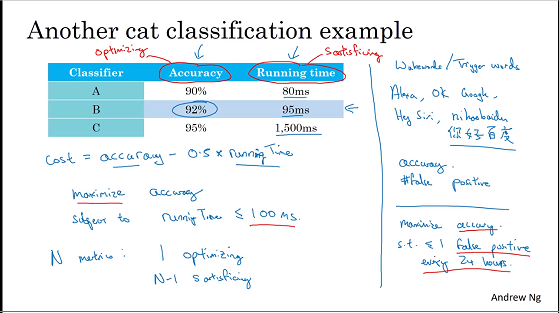 Another cat classification example
optimizing
satisficing
Classifier Accuracy Running time
A 90% 80ms
B 92% 95ms
C 95% 1,500ms
cost = accuracy - 0.5 x running Time
maximize accuracy
subject to running Time ≤ 100 ms.
N metrics : 1 optimizing
N-1 satisficing
Wakewords / Trigger words
Alexa, OK Google,
Hey Siri, nihaobaidu
你好百度
accuracy.
#false positive
maximize accuracy.
s.t. ≤ 1 false positive
every 24 hours.
Andrew Ng